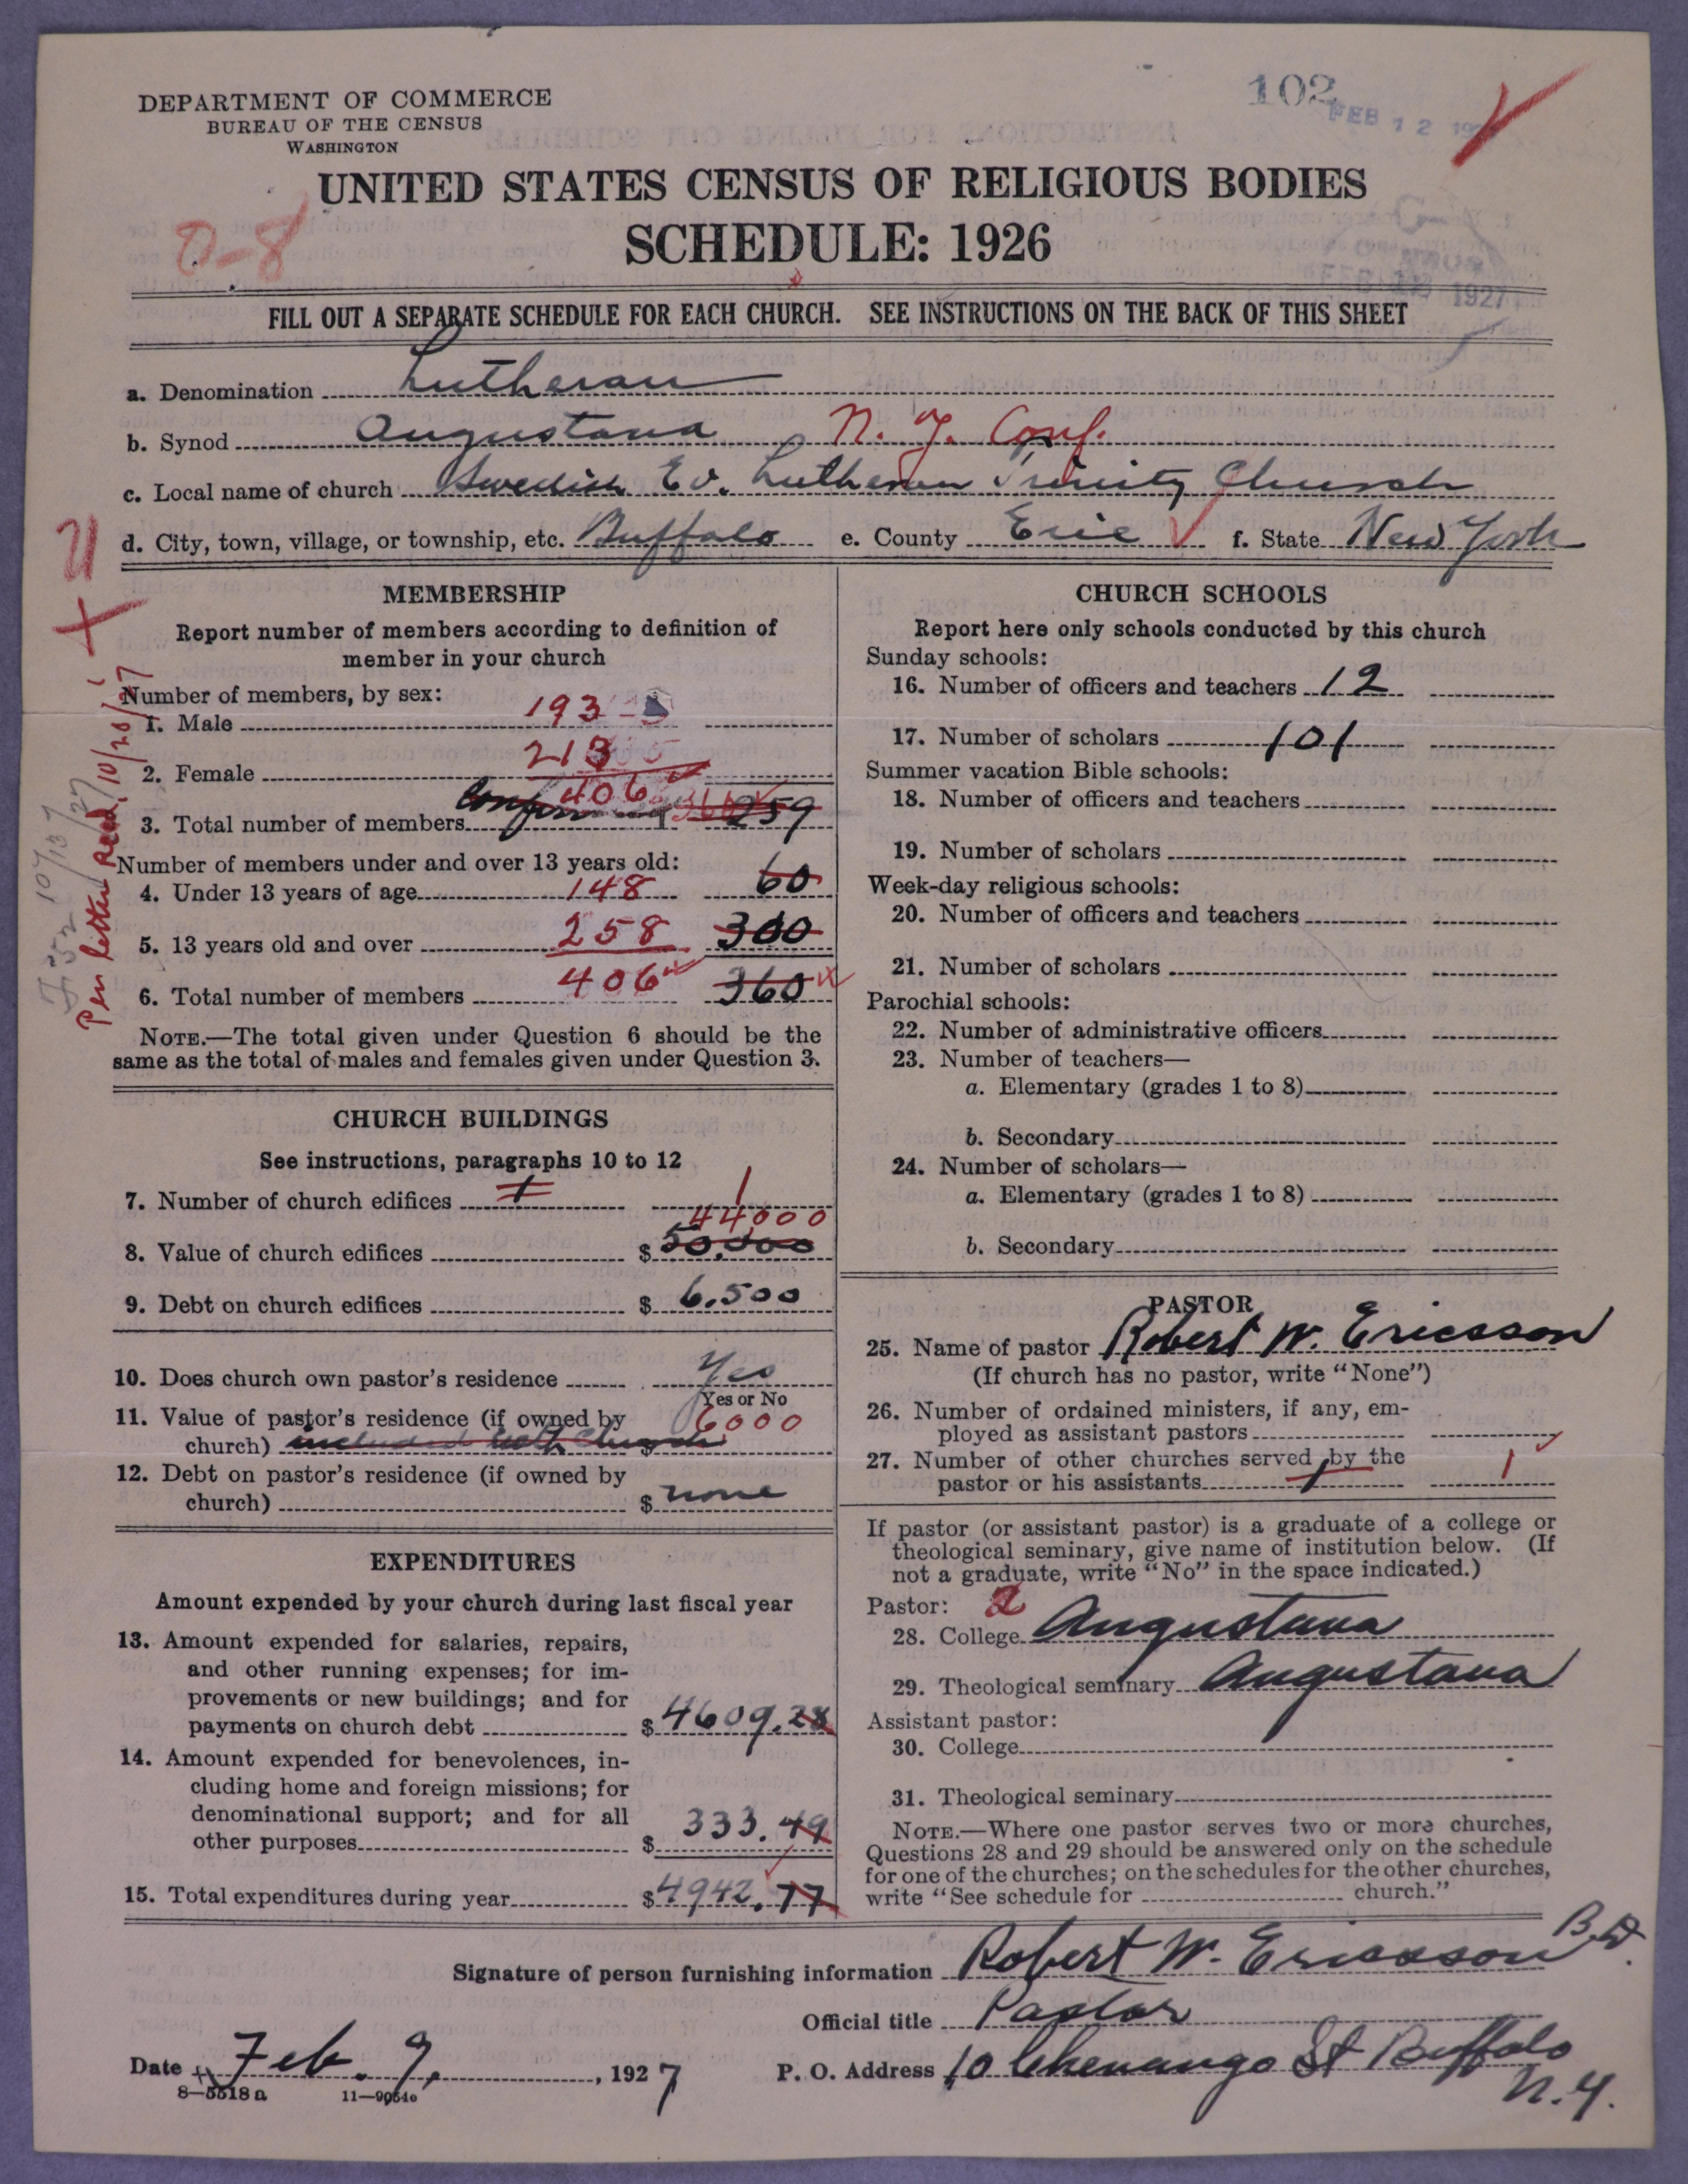 DEPARTMENT OF COMMERCE
BUREAU OF THE CENSUS
WASHINGTON
102
FEB 12
UNITED STATES CENSUS OF RELIGIOUS BODIES
SCHEDULE: 1926
0-8
1927
FILL OUT A SEPARATE SCHEDULE FOR EACH CHURCH. SEE INSTRUCTIONS ON THE BACK OF THIS SHEET
a. Denomination Lutheran
b. Synod Augustana N. Y. Conf.
c. Local name of church Swedish Ev. Lutheran Trinity Church
d. City, town, village, or township, etc. Buffalo e. County Erie f. State New York
Per letter Recd. 10/20/27
MEMBERSHIP
Report number of members according to definition of
member in your church
Number of members, by sex:
1. Male 193
2. Female 213
406
3. Total number of members 259
Number of members under and over 13 years old:
4. Under 13 years of age 148 60
5. 13 years old and over 258 300
6. Total number of members 406 360
NOTE.—The total given under Question 6 should be the
same as the total of males and females given under Question 3.
CHURCH BUILDINGS
See instructions, paragraphs 10 to 12
7. Number of church edifices 1 1
44,000
8. Value of church edifices $ 50,000
9. Debt on church edifices $ 6.500
10. Does church own pastor's residence Yes
Yes or No
11. Value of pastor's residence (if owned by 6000
church) included with Church
12. Debt on pastor's residence (if owned by
church) $ none
EXPENDITURES
Amount expended by your church during last fiscal year
13. Amount expended for salaries, repairs,
and other running expenses; for im-
provements or new buildings; and for
payments on church debt $ 4609.28
14. Amount expended for benevolences, in-
cluding home and foreign missions; for
denominational support; and for all
other purposes $ 333.49
15. Total expenditures during year $ 4942.77
CHURCH SCHOOLS
Report here only schools conducted by this church
Sunday schools:
16. Number of officers and teachers 12
17. Number of scholars 101
Summer vacation Bible schools:
18. Number of officers and teachers
19. Number of scholars
Week-day religious schools:
20. Number of officers and teachers
21. Number of scholars
Parochial schools:
22. Number of administrative officers
23. Number of teachers—
a. Elementary (grades 1 to 8)
b. Secondary
24. Number of scholars—
a. Elementary (grades 1 to 8)
b. Secondary
PASTOR
25. Name of pastor Robert W. Ericsson
(If church has no pastor, write "None")
26. Number of ordained ministers, if any, em-
ployed as assistant pastors
27. Number of other churches served by the
pastor or his assistants 1 1
If pastor (or assistant pastor) is a graduate of a college or
theological seminary, give name of institution below. (If
not a graduate, write "No" in the space indicated.)
Pastor: 2
28. College Augustana
29. Theological seminary Augustana
Assistant pastor:
30. College
31. Theological seminary
NOTE.—Where one pastor serves two or more churches,
Questions 28 and 29 should be answered only on the schedule
for one of the churches; on the schedules for the other churches,
write "See schedule for church."
Signature of person furnishing information Robert W. Ericsson B.D.
Official title Pastor
Date Feb. 9, 1927 P. O. Address 10 Chenango St Buffalo
N.Y.
8—5518 a 11—9054